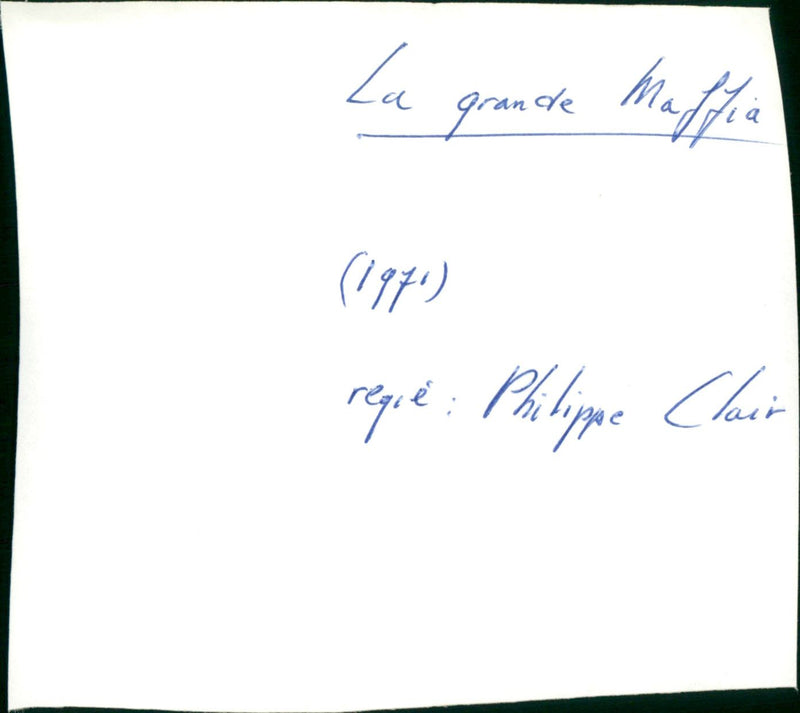 La grande Maffia
(1971)
regié : Philippe Clair